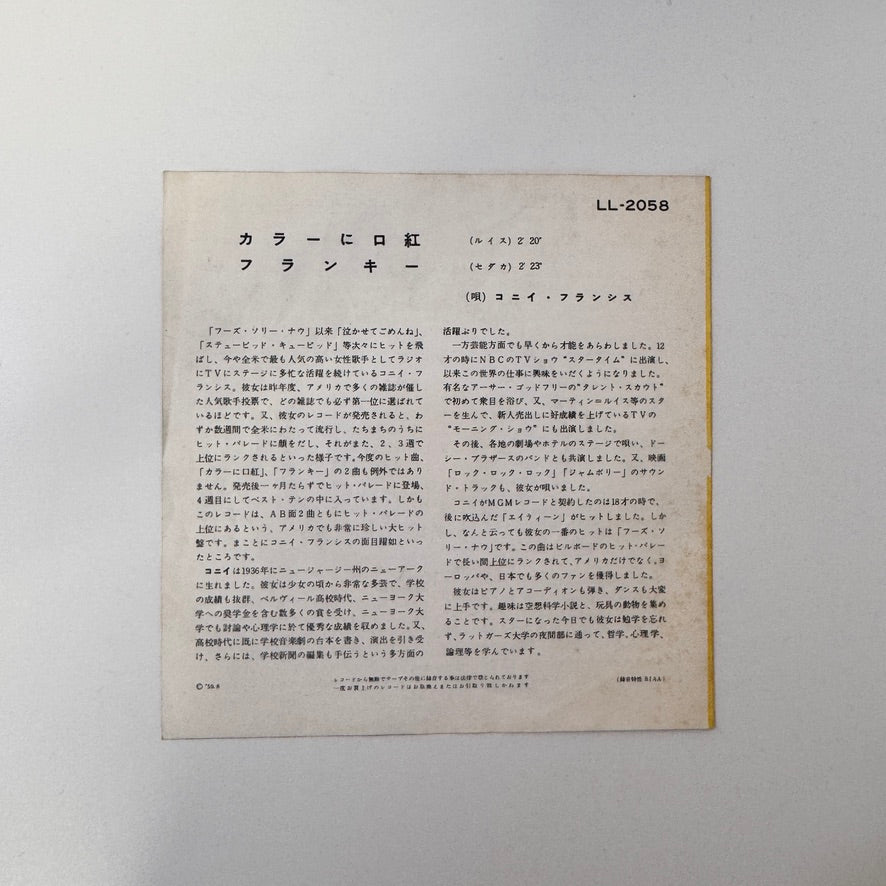 LL-2058
カラーに口紅 (ルイス) 2′20″
フランキー (セダカ) 2′23″
(唄) コニイ・フランシス
「フーズ・ソリー・ナウ」以来「泣かせてごめんね」、
「ステューピッド・キューピッド」等次々にヒットを飛
ばし、今や全米で最も人気の高い女性歌手としてラジオ
にTVにステージに多忙な活躍を続けているコニイ・フ
ランシス。彼女は昨年度、アメリカで多くの雑誌が催し
た人気歌手投票で、どの雑誌でも必ず第一位に選ばれて
いるほどです。又、彼女のレコードが発売されると、わ
ずか数週間で全米にわたって流行し、たちまちのうちに
ヒット・パレードに顔をだし、それがまた、2、3週で
上位にランクされるといった様子です。今度のヒット曲、
「カラーに口紅」、「フランキー」の2曲も例外ではあり
ません。発売後一ヶ月たらずでヒット・パレードに登場、
4週目にしてベスト・テンの中に入っています。しかも
このレコードは、AB面2曲ともにヒット・パレードの
上位にあるという、アメリカでも非常に珍しい大ヒット
盤です。まことにコニイ・フランシスの面目躍如といっ
たところです。
コニイは1936年にニュージャージー州のニューアーク
に生れました。彼女は少女の頃から非常な多芸で、学校
の成績も抜群、ベルヴィール高校時代、ニューヨーク大
学への奨学金を含む数多くの賞を受け、ニューヨーク大
学でも討論や心理学に於て優秀な成績を収めました。又、
高校時代に既に学校音楽劇の台本を書き、演出を引き受
け、さらには、学校新聞の編集も手伝うという多方面の
活躍ぶりでした。
一方芸能方面でも早くから才能をあらわしました。12
才の時にNBCのTVショウ“スタータイム”に出演し、
以来この世界の仕事に興味をいだくようになりました。
有名なアーサー・ゴッドフリーの“タレント・スカウト”
で初めて衆目を浴び、又、マーティン＝ルイス等のスタ
ーを生んで、新人売出しに好成績を上げているTVの
“モーニング・ショウ”にも出演しました。
その後、各地の劇場やホテルのステージで唄い、ドー
シー・ブラザースのバンドとも共演しました。又、映画
「ロック・ロック・ロック」「ジャムボリー」のサウン
ド・トラックも、彼女が唄いました。
コニイがMGMレコードと契約したのは18才の時で、
後に吹込んだ「エイティーン」がヒットしました。しか
し、なんと云っても彼女の一番のヒットは「フーズ・ソ
リー・ナウ」です。この曲はビルボードのヒット・パレー
ドで長い間上位にランクされて、アメリカだけでなく、ヨ
ーロッパや、日本でも多くのファンを獲得しました。
彼女はピアノとアコーディオンも弾き、ダンスも大変
に上手です。趣味は空想科学小説と、玩具の動物を集め
ることです。スターになった今日でも彼女は勉学を忘れ
ず、ラットガーズ大学の夜間部に通って、哲学、心理学、
論理等を学んでいます。
© '59.8
レコードから無断でテープその他に録音する事は法律で禁じられております
一度お買上げのレコードはお取換えまたはお引取り致しかねます
(録音特性 RIAA)